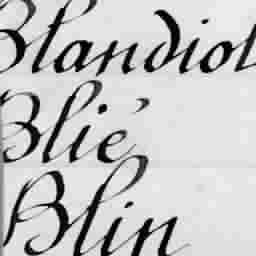 Blandiol
Blié
Blin